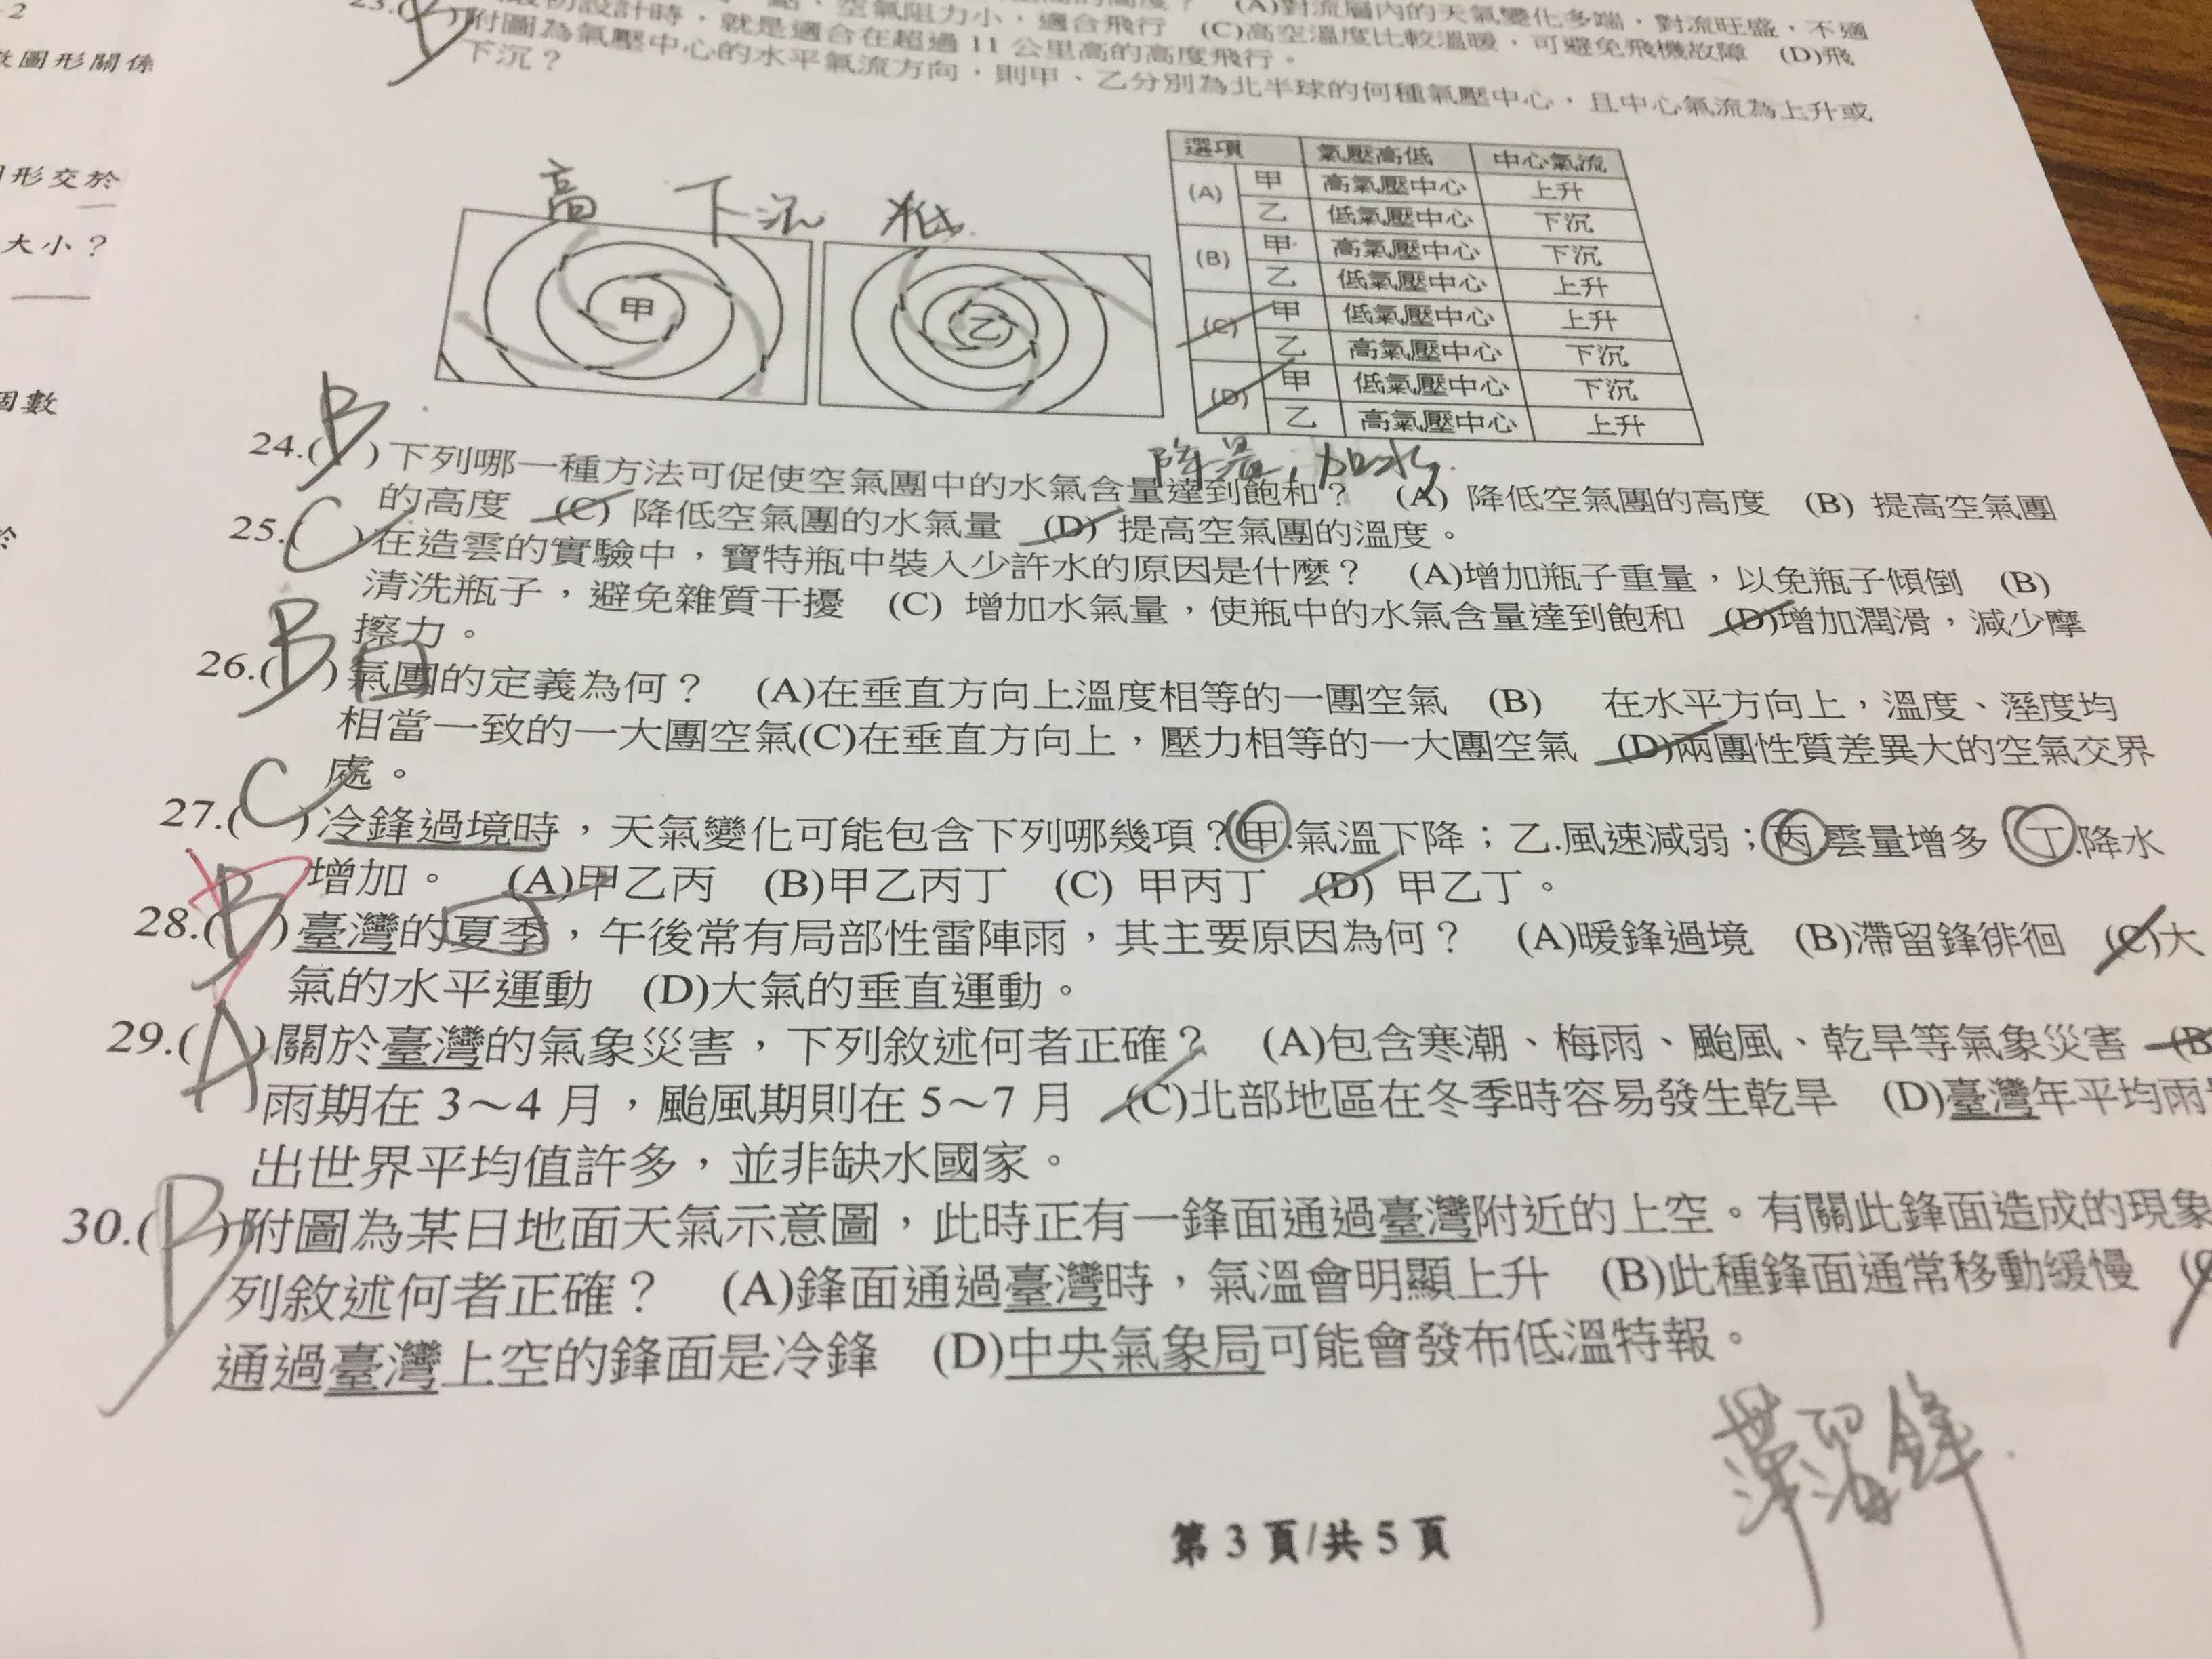 2
數圖形關係
形交於
大小？
個數
於
(A)對流層內的天氣變化多端，對流旺盛，不適
空氣阻力小，適合飛行 (C)高空溫度比較溫暖，可避免飛機故障 (D)飛
初設計時，就是適合在超過 11 公里高的高度飛行。
23.(B)附圖為氣壓中心的水平氣流方向，則甲、乙分別為北半球的何種氣壓中心，且中心氣流為上升或
下沉？
高 下沉 低
甲 乙
選項 氣壓高低 中心氣流
(A) 甲 高氣壓中心 上升
乙 低氣壓中心 下沉
(B) 甲 高氣壓中心 下沉
乙 低氣壓中心 上升
(C) 甲 低氣壓中心 上升
乙 高氣壓中心 下沉
(D) 甲 低氣壓中心 下沉
乙 高氣壓中心 上升
加水
24.(B)下列哪一種方法可促使空氣團中的水氣含量達到飽和？ (A) 降低空氣團的高度 (B) 提高空氣團
的高度 (C) 降低空氣團的水氣量 (D) 提高空氣團的溫度。
25.(C)在造雲的實驗中，寶特瓶中裝入少許水的原因是什麼？ (A)增加瓶子重量，以免瓶子傾倒 (B)
清洗瓶子，避免雜質干擾 (C) 增加水氣量，使瓶中的水氣含量達到飽和 (D)增加潤滑，減少摩
擦力。
26.(B)氣團的定義為何？ (A)在垂直方向上溫度相等的一團空氣 (B) 在水平方向上，溫度、溼度均
相當一致的一大團空氣(C)在垂直方向上，壓力相等的一大團空氣 (D)兩團性質差異大的空氣交界
處。
27.(C)冷鋒過境時，天氣變化可能包含下列哪幾項？甲.氣溫下降；乙.風速減弱；丙.雲量增多；丁.降水
增加。 (A)甲乙丙 (B)甲乙丙丁 (C) 甲丙丁 (D) 甲乙丁。
28.(B)臺灣的夏季，午後常有局部性雷陣雨，其主要原因為何？ (A)暖鋒過境 (B)滯留鋒徘徊 (C)大
氣的水平運動 (D)大氣的垂直運動。
29.(A)關於臺灣的氣象災害，下列敘述何者正確？ (A)包含寒潮、梅雨、颱風、乾旱等氣象災害 (B
雨期在 3～4 月，颱風期則在 5～7 月 (C)北部地區在冬季時容易發生乾旱 (D)臺灣年平均雨
出世界平均值許多，並非缺水國家。
30.(B)附圖為某日地面天氣示意圖，此時正有一鋒面通過臺灣附近的上空。有關此鋒面造成的現象
列敘述何者正確？ (A)鋒面通過臺灣時，氣溫會明顯上升 (B)此種鋒面通常移動緩慢 (C
通過臺灣上空的鋒面是冷鋒 (D)中央氣象局可能會發布低溫特報。
滯留鋒
第 3 頁/共 5 頁